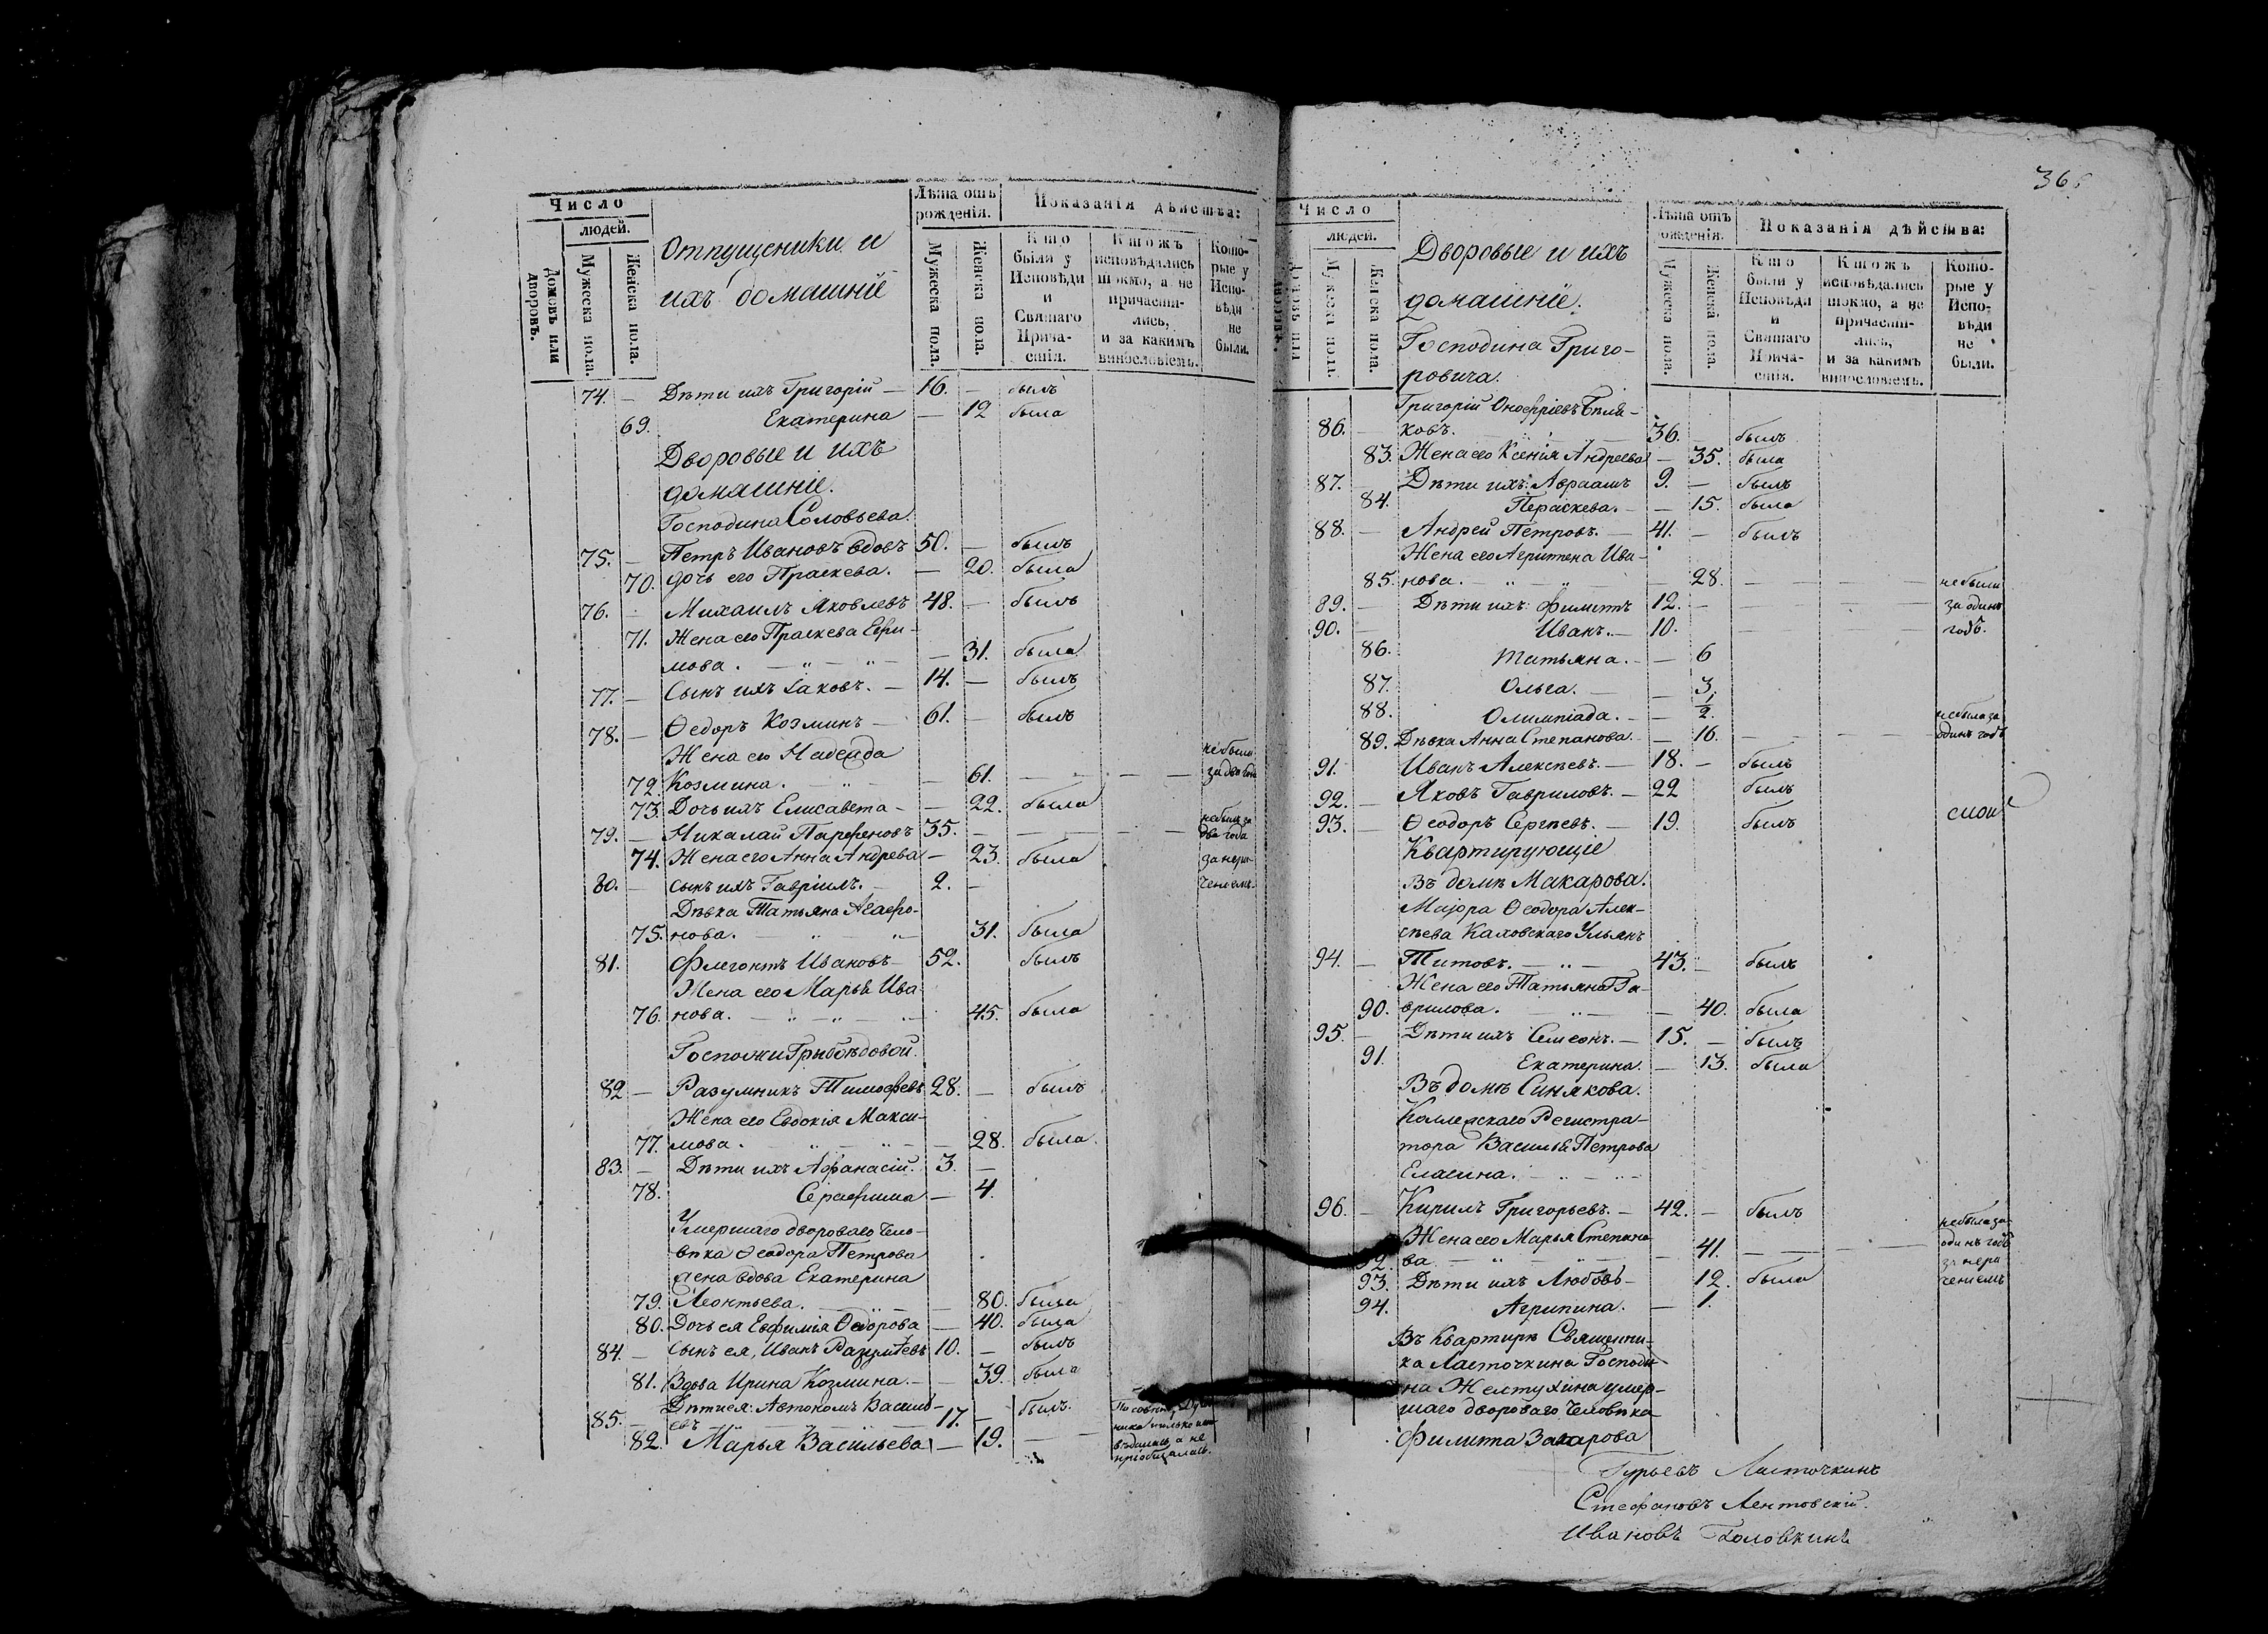 Число
людей.
Домовъ или дворовъ.
Мужеска пола.
Женска пола.
Отпущеники и
ихъ домашніе
Лѣта отъ
рожденія.
Мужеска пола.
Женска пола.
Показанія дѣйства:
Кто были у Исповѣди и Святаго Прича-стія.
Ктожъ исповѣдались токмо, а не причасти-лись, и за какимъ винословіемъ.
Кото-рые у Испо-вѣди не были.
74. — Дѣти ихъ Григорій — 16. — былъ
69. Екатерина — 12 была
Дворовые и ихъ
домашніе.
Господина Соловьева.
75. — Петръ Ивановъ вдовъ 50. — былъ
70. дочь его Праскева. — 20. была
76. Михаилъ Яковлевъ 48. — былъ
71. Жена его Праскева Ефи-
мова. — 31. была
77. — Сынъ ихъ Іаковъ. — 14. — былъ
78. — Ѳедоръ Козминъ — 61. — былъ
Жена его Надежда
72. Козмина. — 61. — не была за два года
73. Дочь ихъ Елисавета — 22. была
79. — Николай Парфеновъ 35. — не былъ за два года
74. Жена его Анна Андрева — 23. была за нера-
80. — сынъ ихъ Гавріилъ. 2. — ченіемъ.
Дѣвка Татьяна Агафо-
75. нова. — 31. была
81. Флегонтъ Ивановъ — 52. былъ
Жена его Марья Ива-
76. нова. — 45. была
Госпожи Грибоѣдовой.
82 — Разумникъ Тимофевъ 28. — былъ
Жена его Евдокія Макси-
77. мова. — 28. была.
83. — Дѣти ихъ Афанасій. 3. —
78. Серафима — 4.
Умершаго двороваго чело-
вѣка Ѳеодора Петрова
жена вдова Екатерина
79. Леонтьева. — 80. была
80. Дочь ея Евфимія Ѳедорова — 40. была
84. — сынъ ея, Иванъ 10. — былъ
81. Вдова Ирина Козмина. — 39. была
Дѣти ея: Автономъ Василь-
85. — евъ 17. — былъ.
82. Марья Васильева — 19. —
По совѣту
ника только испо
вѣдалась а не
пріобщалась.
366
Число
людей.
Мужеска пола.
Женска пола.
Дворовые и ихъ
домашніе.
Господина Григо-
ровича.
Лѣта отъ
рожденія.
Мужеска пола.
Женска пола.
Показанія дѣйства:
Кто были у Исповѣди и Святаго Прича-стія.
Ктожъ исповѣдались токмо, а не причасти-лись, и за какимъ винословіемъ.
Кото-рые у Испо-вѣди не были.
Григорій Онофріевъ Бѣля-
86. — ковъ. 36. — былъ
83. Жена его Ксенія Андреева — 35. была
87. — Дѣти ихъ: Авраамъ 9. — былъ
84. Пераскева. — 15. была
88. — Андрей Петровъ. — 41. — былъ
Жена его Агрипена Ива-
85. нова. — 28. — не были
89. — Дѣти ихъ: Филипъ 12. — за одинъ
90. — Иванъ. — 10. — годъ.
86. Татьяна. — 6
87. Ольга. — 3.
88. Олимпіада. — 1/2.
89. Дѣвка Анна Степанова. — 16. — не была за одинъ годъ
91. Иванъ Алексѣевъ. — 18. — былъ
92. — Яковъ Гавриловъ. — 22 былъ
93. Ѳеодоръ Сергѣевъ. — 19. былъ
Квартирующіе
Въ домѣ Макарова.
Маіора Ѳеодора Алек-
сѣева Каховскаго Ульянъ
94. — Титовъ. — 43. — былъ
Жена его Татьяна Га-
90. врилова. — 40. была
95. — Дѣти ихъ Семеонъ. — 15. — былъ
91. Екатерина. — 13. была
Въ домѣ Синякова.
Коллежскаго Регистра-
тора Василья Петрова
Елагина.
96. — Кирилъ Григорьевъ. — 42. — былъ
Жена его Марья Степано-
92. ва — 41. — не была за одинъ годъ за нера ченіемъ
93. Дѣти ихъ Любовь — 12. была
94. Агрипина. — 1.
Въ квартирѣ Священни-
ка Ласточкина Господи-
на Желтухина умер-
шаго двороваго человѣка
Филипа Захарова
Гурьевъ Ласточкинъ
Стефановъ Лентовскій.
Ивановъ Головкинъ